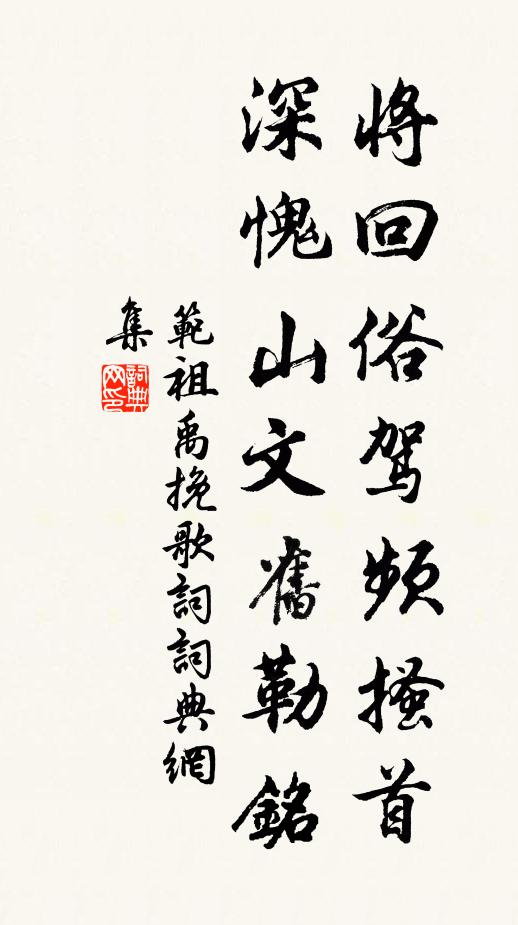 將回俗駕頻搔首
深愧山文舊勒銘
範祖禹挽歌詞詞典網
集
詞典
网印